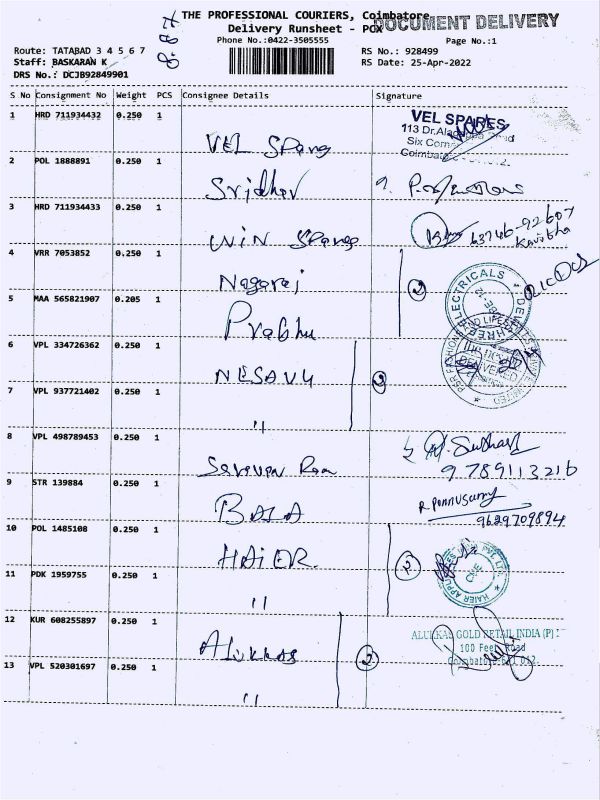 THE PROFESSIONAL COURIERS, Coimbatore
DOCUMENT DELIVERY
Delivery Runsheet - POX
Phone No.:0422-3505555
Page No.:1
Route: TATABAD 3 4 5 6 7
RS No.: 928499
Staff: BASKARAN K
RS Date: 25-Apr-2022
DRS No.: DCJB92849901
S No Consignment No Weight PCS Consignee Details Signature
1 HRD 711934432 0.250 1 VEL Spares
VEL SPARES
113 Dr.Ala
Six Corner
Coimbatore
2 POL 1888891 0.250 1 Sridhar
3 HRD 711934433 0.250 1 WIN Spares
63746-92607
Kavibha
4 VRR 7053852 0.250 1 Nagaraj
2
5 MAA 565821907 0.205 1 Prabhu
6 VPL 334726362 0.250 1 NESAVU
2
7 VPL 937721402 0.250 1 "
8 VPL 498789453 0.250 1 Saravan Ram
9789113216
9 STR 139884 0.250 1 BALA
R. Ponnusamy
9629709894
10 POL 1485108 0.250 1 HAIER
2
11 PDK 1959755 0.250 1 "
12 KUR 608255897 0.250 1 Alukkas
2
ALUKKAS GOLD RETAIL INDIA (P)
100 Feet Road
Coimbatore-641 012.
13 VPL 520301697 0.250 1 "